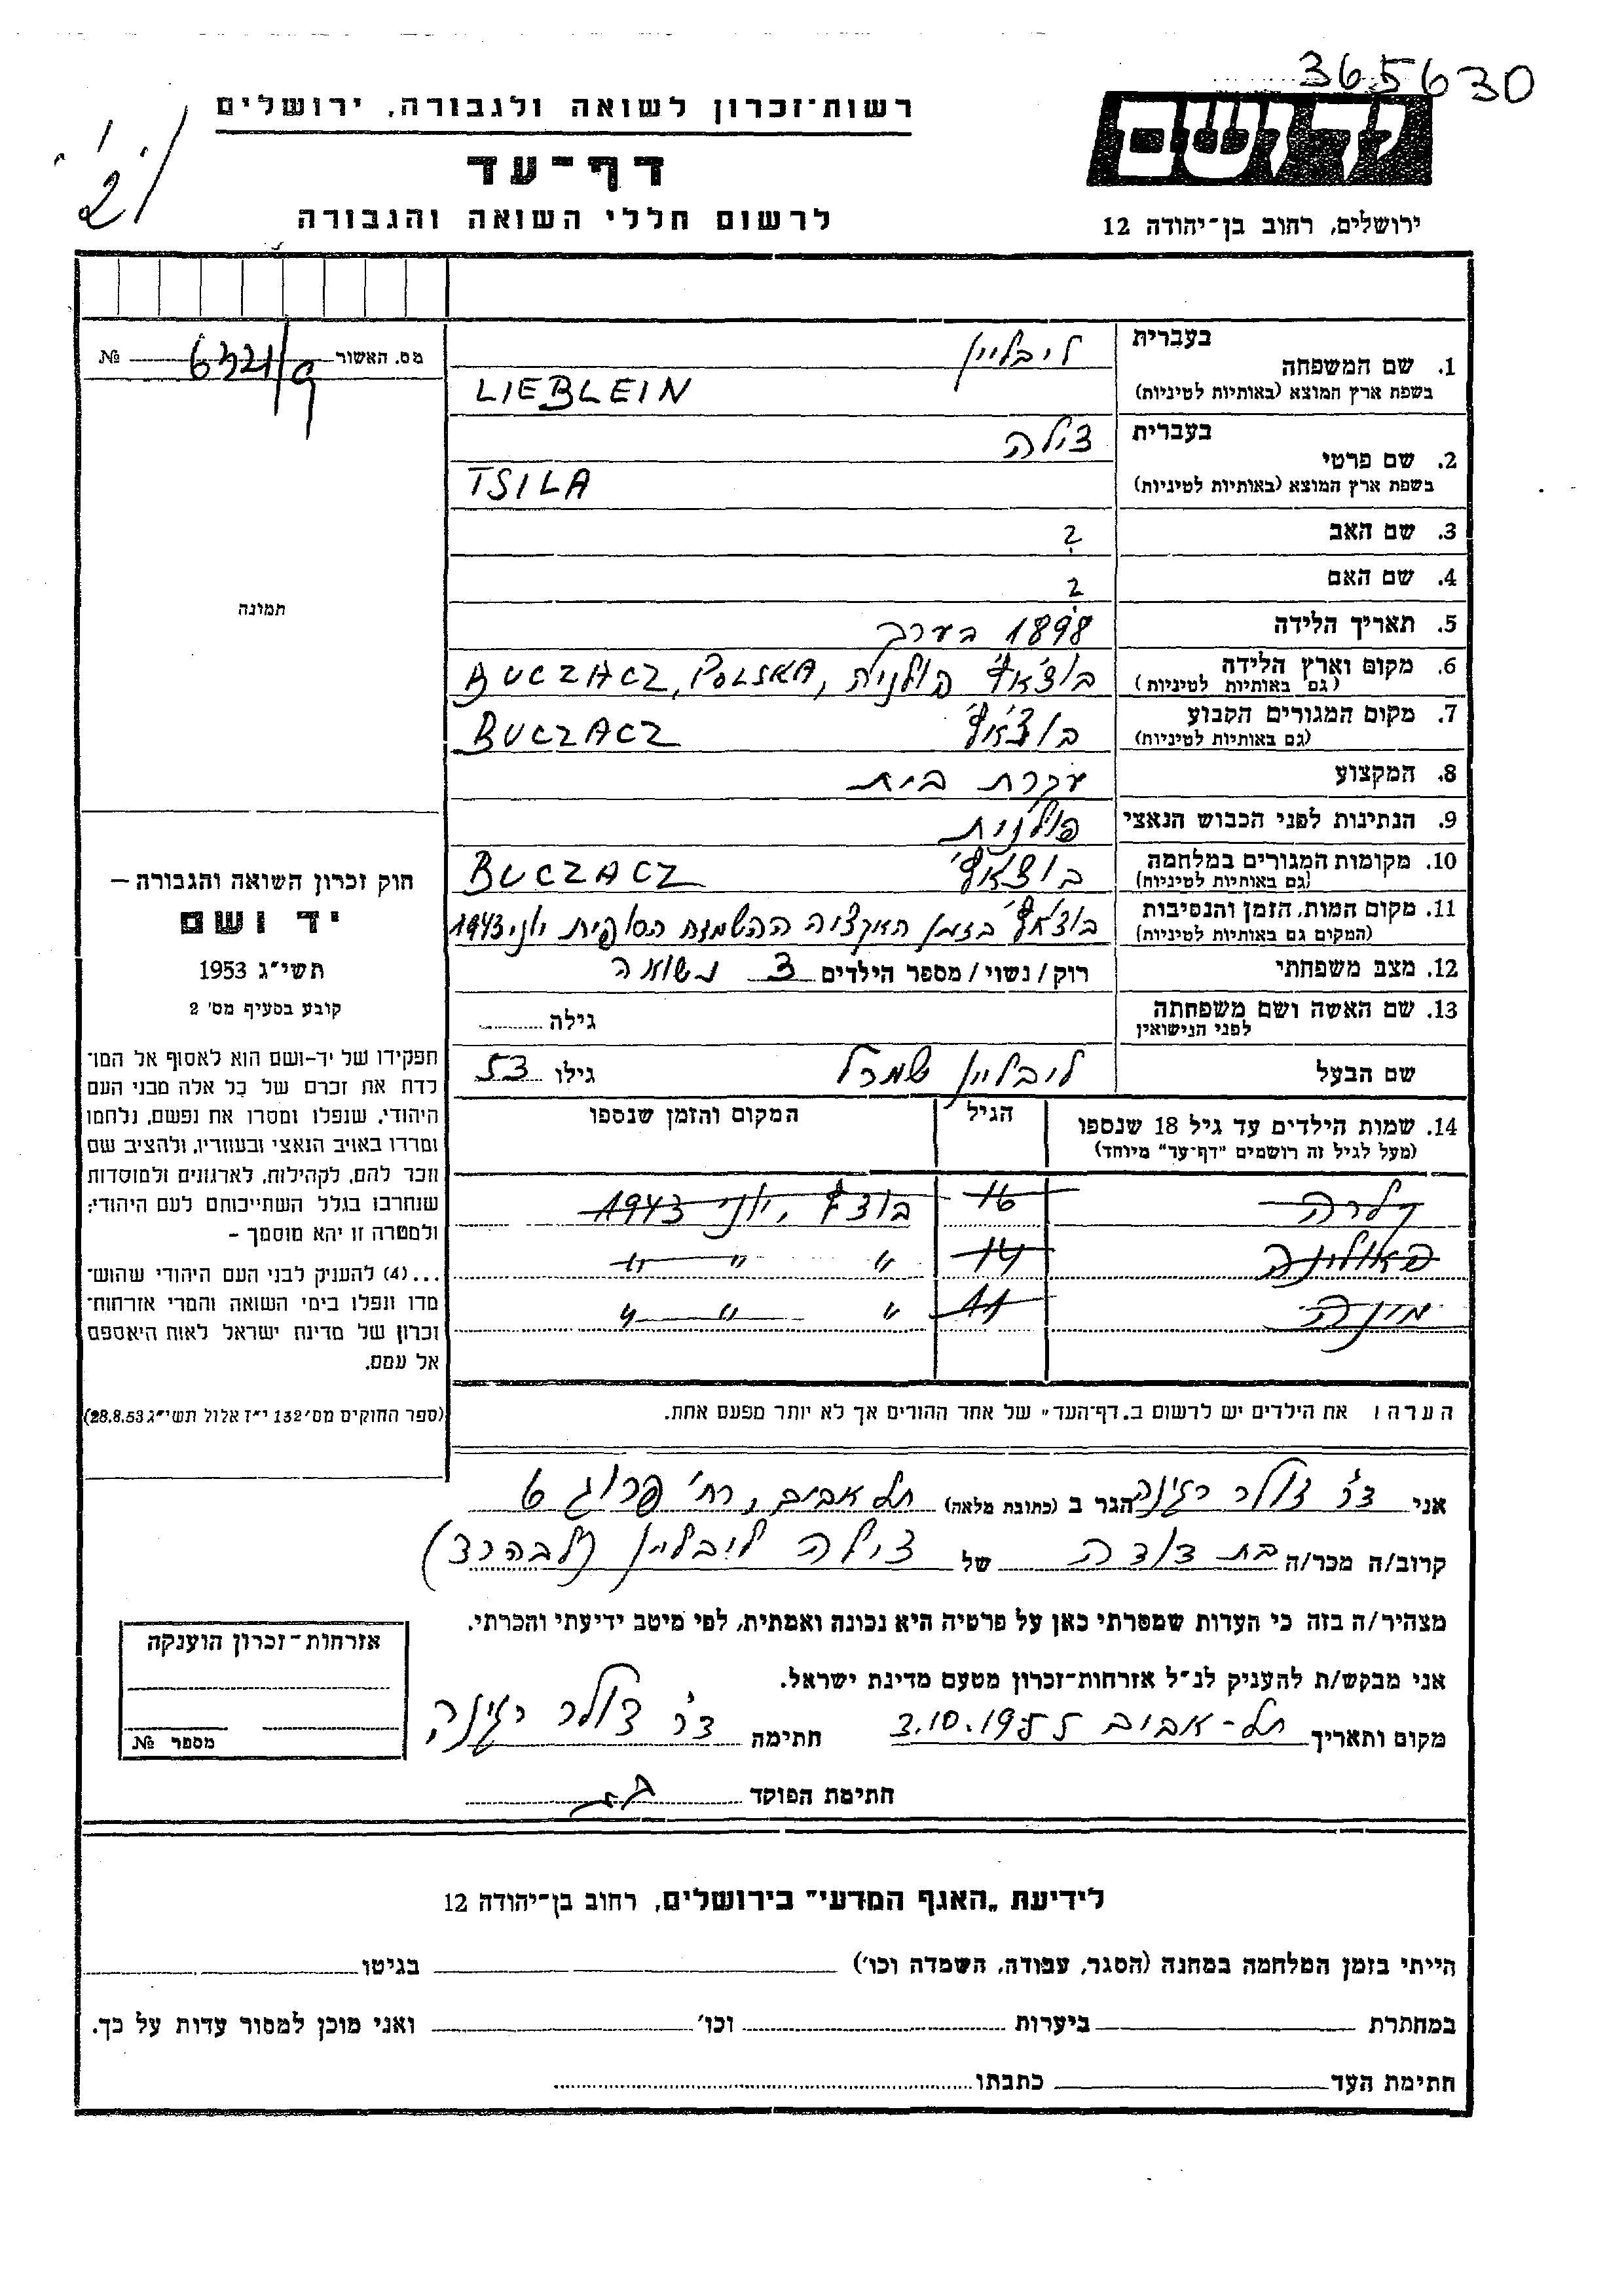 365630
רשות־זכרון לשואה ולגבורה, ירושלים
יד ושם
דף־עד
לרשום חללי השואה והגבורה
ירושלים, רחוב בן־יהודה 12
בעברית
1. שם המשפחה
בשפת ארץ המוצא (באותיות לטיניות)
ליבליין
LIEBLEIN
בעברית
2. שם פרטי
בשפת ארץ המוצא (באותיות לטיניות)
צילה
TSILA
3. שם האב ?
4. שם האם ?
5. תאריך הלידה 1898 בערך
6. מקום וארץ הלידה בוצ'אץ' פולנית, BUCZACZ, POLSKA
(גם באותיות לטיניות)
7. מקום המגורים הקבוע בוצ'אץ' BUCZACZ
(גם באותיות לטיניות)
8. המקצוע עקרת בית
9. הנתינות לפני הכבוש הנאצי פולנית
10. מקומות המגורים במלחמה בוצ'אץ' BUCZACZ
(גם באותיות לטיניות)
11. מקום המות, הזמן והנסיבות בוצ'אץ' בזמן האקציה ההשמדה הסופית יוני 1943
(המקום גם באותיות לטיניות)
12. מצב משפחתי רוק / נשוי / מספר הילדים 3 נשואה
13. שם האשה ושם משפחתה גילה
לפני הנישואין
שם הבעל ליבליין שמרל גילו 53
14. שמות הילדים עד גיל 18 שנספו הגיל המקום והזמן שנספו
(מעל לגיל זה רושמים "דף־עד" מיוחד)
קלרה 16 בוצץ', יוני 1943
פאולינה 14 " " "
מינה 11 " " "
הערה: את הילדים יש לרשום ב„דף־העד" של אחד ההורים אך לא יותר מפעם אחת.
מס. האשור № 6321/9
תמונה
חוק זכרון השואה והגבורה –
יד ושם
תשי״ג 1953
קובע בסעיף מס' 2
תפקידו של יד-ושם הוא לאסוף אל המו־
לדת את זכרם של כל אלה מבני העם
היהודי, שנפלו ומסרו את נפשם, נלחמו
ומרדו באויב הנאצי ובעוזריו, ולהציב שם
וזכר להם, לקהילות, לארגונים ולמוסדות
שנחרבו בגלל השתייכותם לעם היהודי;
ולמטרה זו יהא מוסמך –
...(4) להעניק לבני העם היהודי שהוש־
מדו ונפלו בימי השואה והמרי אזרחות־
זכרון של מדינת ישראל לאות היאספם
אל עמם.
(ספר החוקים מס' 132 י״ז אלול תשי״ג 28.8.53)
אני ד״ר צולר רגינה הגר ב (כתובת מלאה) תל אביב, רח' פרוג 6
קרוב/ה מכר/ה בת דודה של צילה ליבליין
מצהיר/ה בזה כי העדות שמסרתי כאן על פרטיה היא נכונה ואמתית, לפי מיטב ידיעתי והכרתי.
אני מבקש/ת להעניק לנ״ל אזרחות־זכרון מטעם מדינת ישראל.
מקום ותאריך תל-אביב 3.10.1955 חתימה ד״ר צולר רגינה
חתימת הפוקד
אזרחות־זכרון הוענקה
מספר №
לידיעת „האגף המדעי" בירושלים, רחוב בן־יהודה 12
הייתי בזמן המלחמה במחנה (הסגר, עבודה, השמדה וכו') בגיטו
במחתרת ביערות וכו' ואני מוכן למסור עדות על כך.
חתימת העד כתבתו